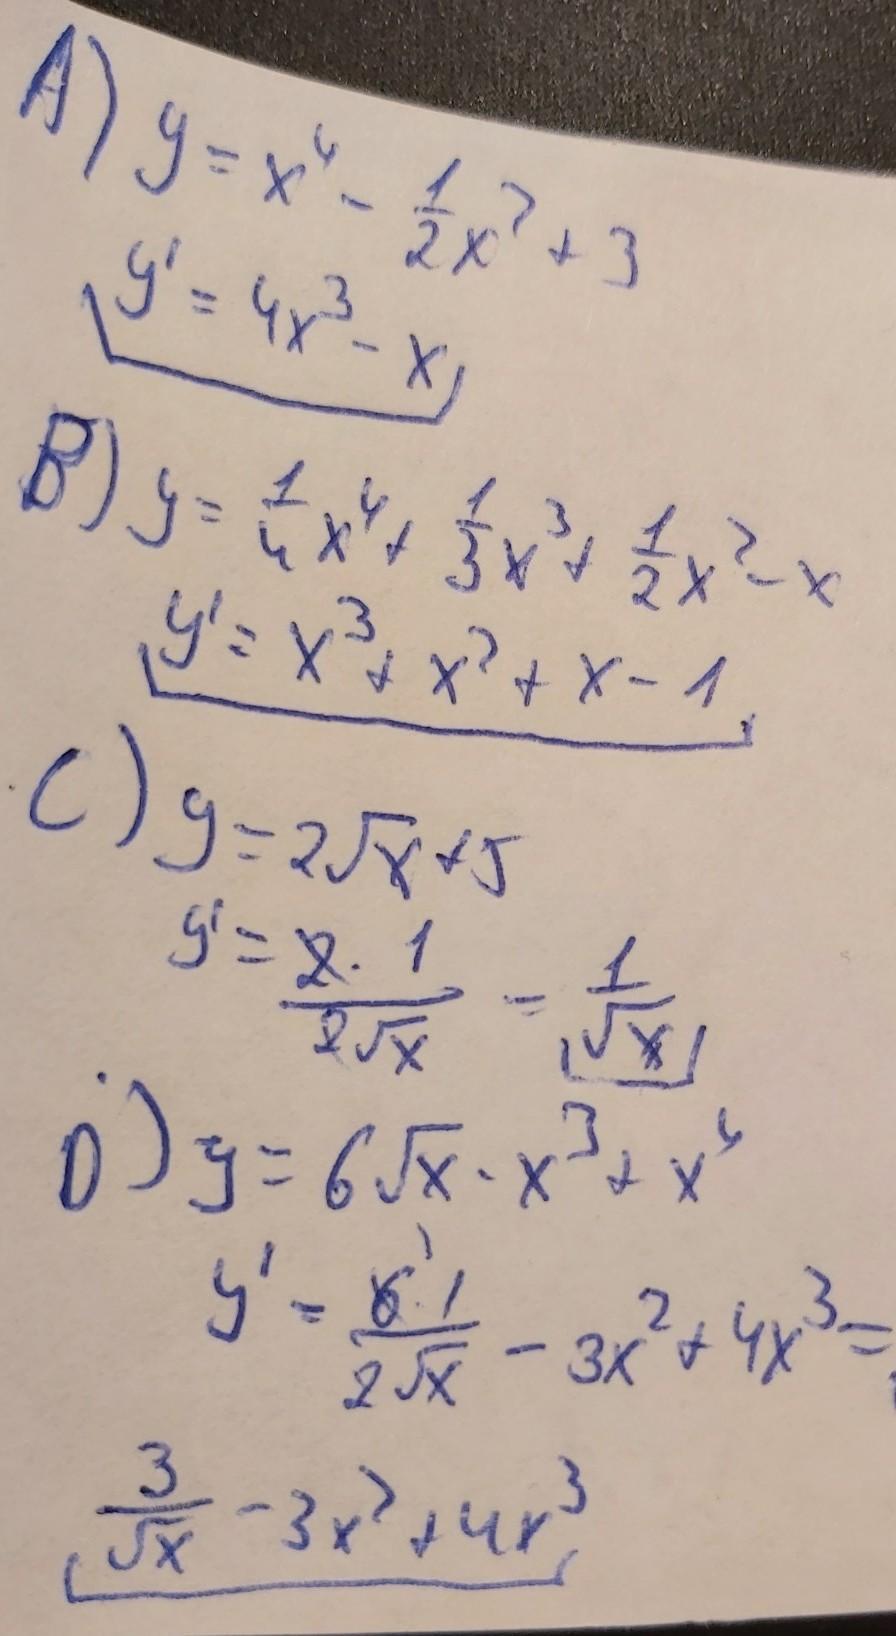 A) y = x⁴ - 1/2 x² + 3
y' = 4x³ - x
B) y = 1/4 x⁴ + 1/3 x³ + 1/2 x² - x
y' = x³ + x² + x - 1
C) y = 2√x + 5
y' = 2·1/2√x = 1/√x
D) y = 6√x - x³ + x⁴
y' = 6·1/2√x - 3x² + 4x³ =
3/√x - 3x² + 4x³